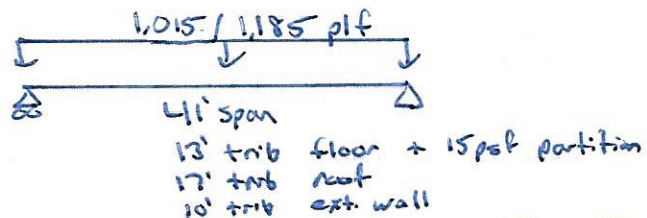 1,015 / 1,185 plf
41' span
13' trib floor + 15psf partition
17' trib roof
10' trib ext. wall